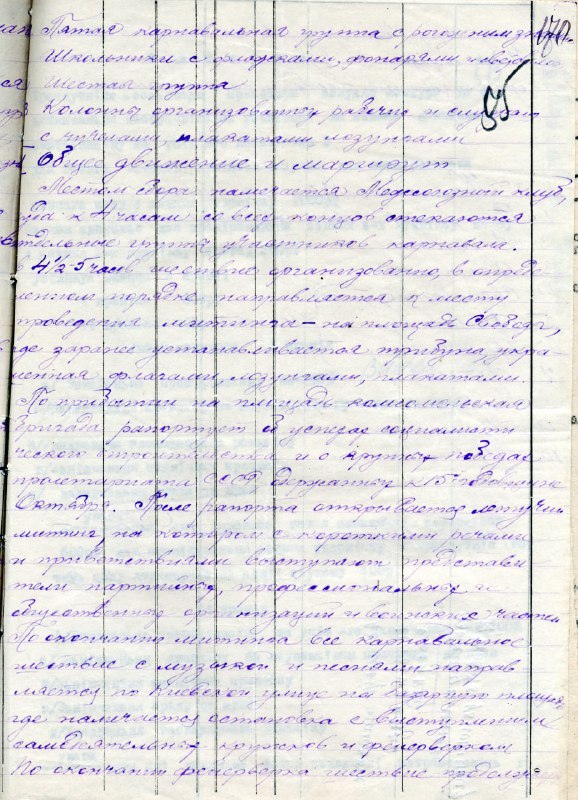 170
85
Пятая карнавальная группа с
Школьники с флажками, фонарями и
Шестая группа
Колонны организованных рабочих и
с чучелами, плакатами, лозунгами
Общее движение и маршрут
Местом сбора намечается клуб,
к 4 часам со всех концов стекаются
отдельные группы участников карнавала.
в 4½-5 часов шествие организованно, в опреде-
ленном порядке направляется к месту
проведения митинга – на площадь Свободы,
где заранее устанавливается трибуна, укра-
шенная флагами, лозунгами, плакатами.
По прибытии на площадь комсомольская
бригада рапортует об успехах социалисти
ческого строительства и о крупных победах
пролетариата СССР к 15 годовщине
Октября. После рапорта открывается летучий
митинг, на котором с короткими речами
и приветствиями выступают представи
тели партийных, профессиональных и
общественных организаций и воинских частей
По окончании митинга все карнавальное
шествие с музыкой и песнями направ
ляется по Киевской улице на Базарную площадь
где намечается остановка с выступлением
самодеятельных кружков и фейерверком
По окончании фейерверка шествие